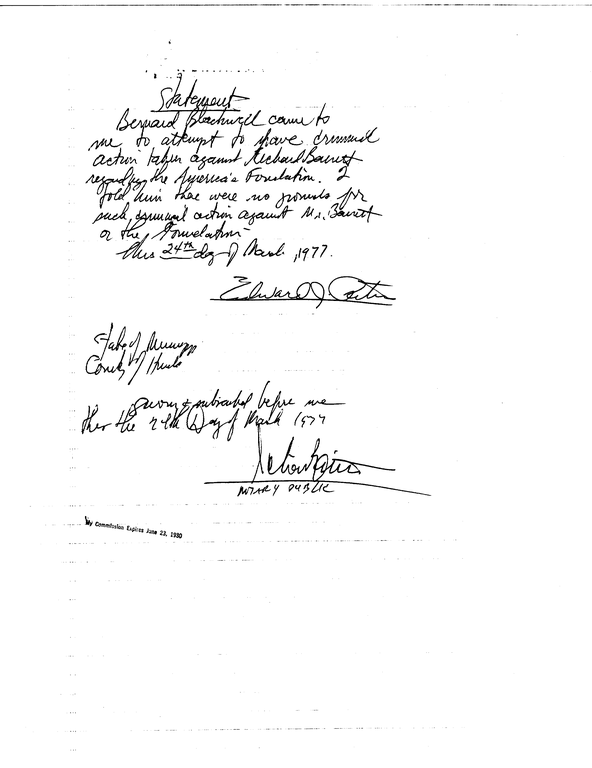 Statement
Bernard Blackwell came to
me to attempt to have criminal
action taken against Richard Barrett
regarding the America's Foundation. I
told him there were no grounds for
such criminal action against Mr. Barrett
or the Foundation
this 24th day of March, 1977.
Edward J.
State of
County of Hinds
Sworn & subscribed before me
this the 24th Day of March 1977
NOTARY PUBLIC
My Commission Expires June 22, 1980